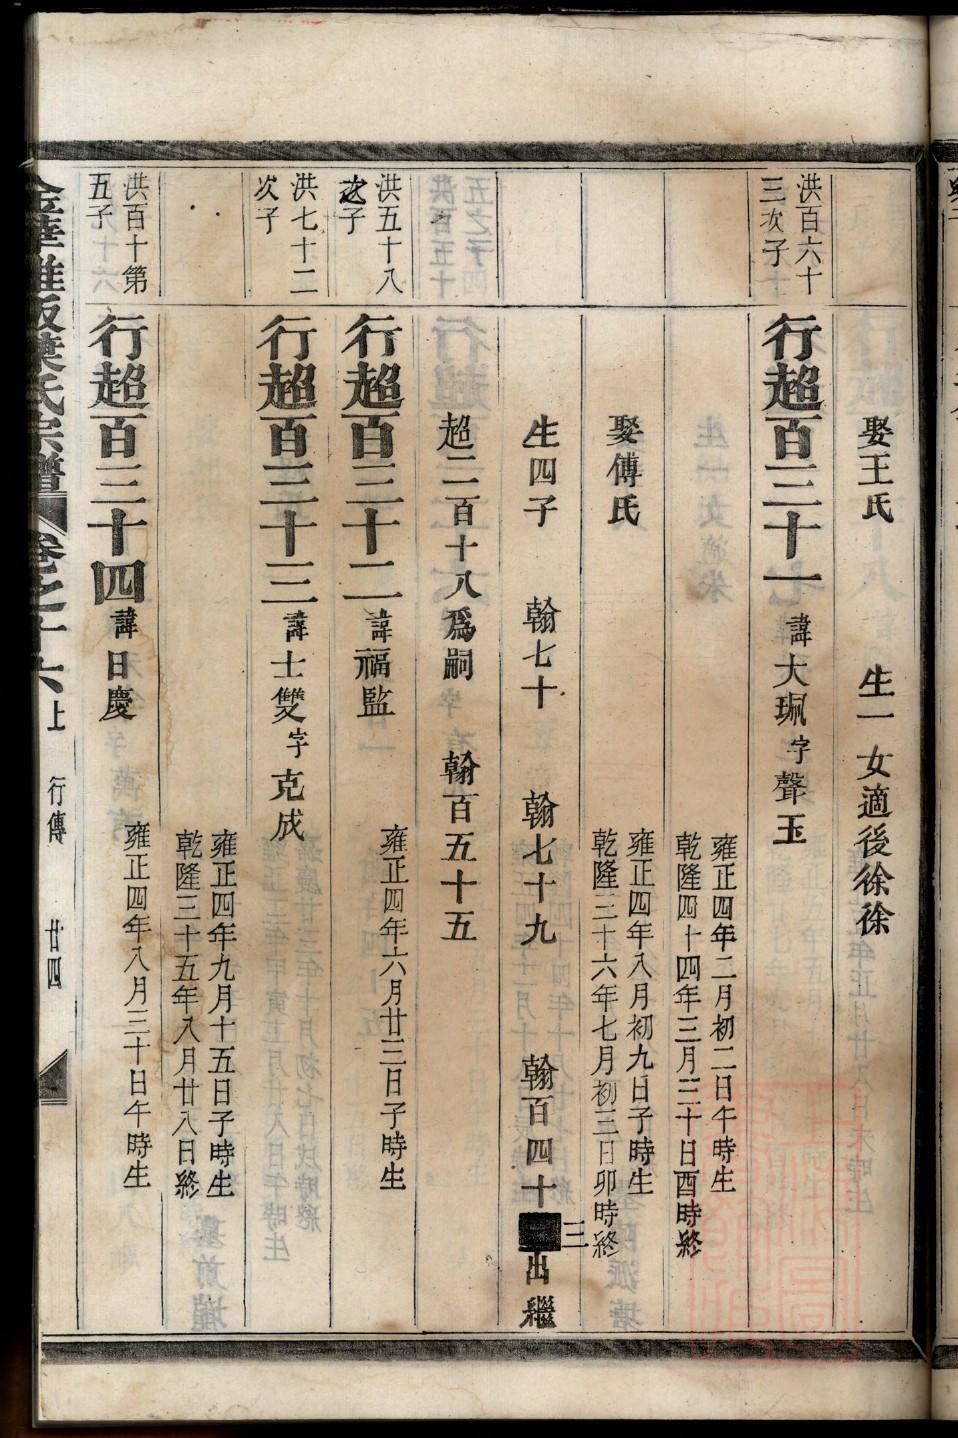 娶王氏　生一女適後徐徐
洪百六十三次子
行超百三十一諱大珮字聲玉
雍正四年二月初二日午時生
乾隆四十四年三月三十日酉時終
娶傅氏
雍正四年八月初九日子時生
乾隆三十六年七月初三日卯時終
生四子　翰七十　翰七十九　翰百四十三出繼
超二百十八爲嗣　翰百五十五
洪五十八次子
行超百三十二諱福監
雍正四年六月廿三日子時生
洪七十二次子
行超百三十三諱士雙字克成
雍正四年九月十五日子時生
乾隆三十五年八月廿八日終
洪百十第五子
行超百三十四諱日慶
雍正四年八月三十日午時生
葉氏宗譜　卷之十六上　行傳　廿四